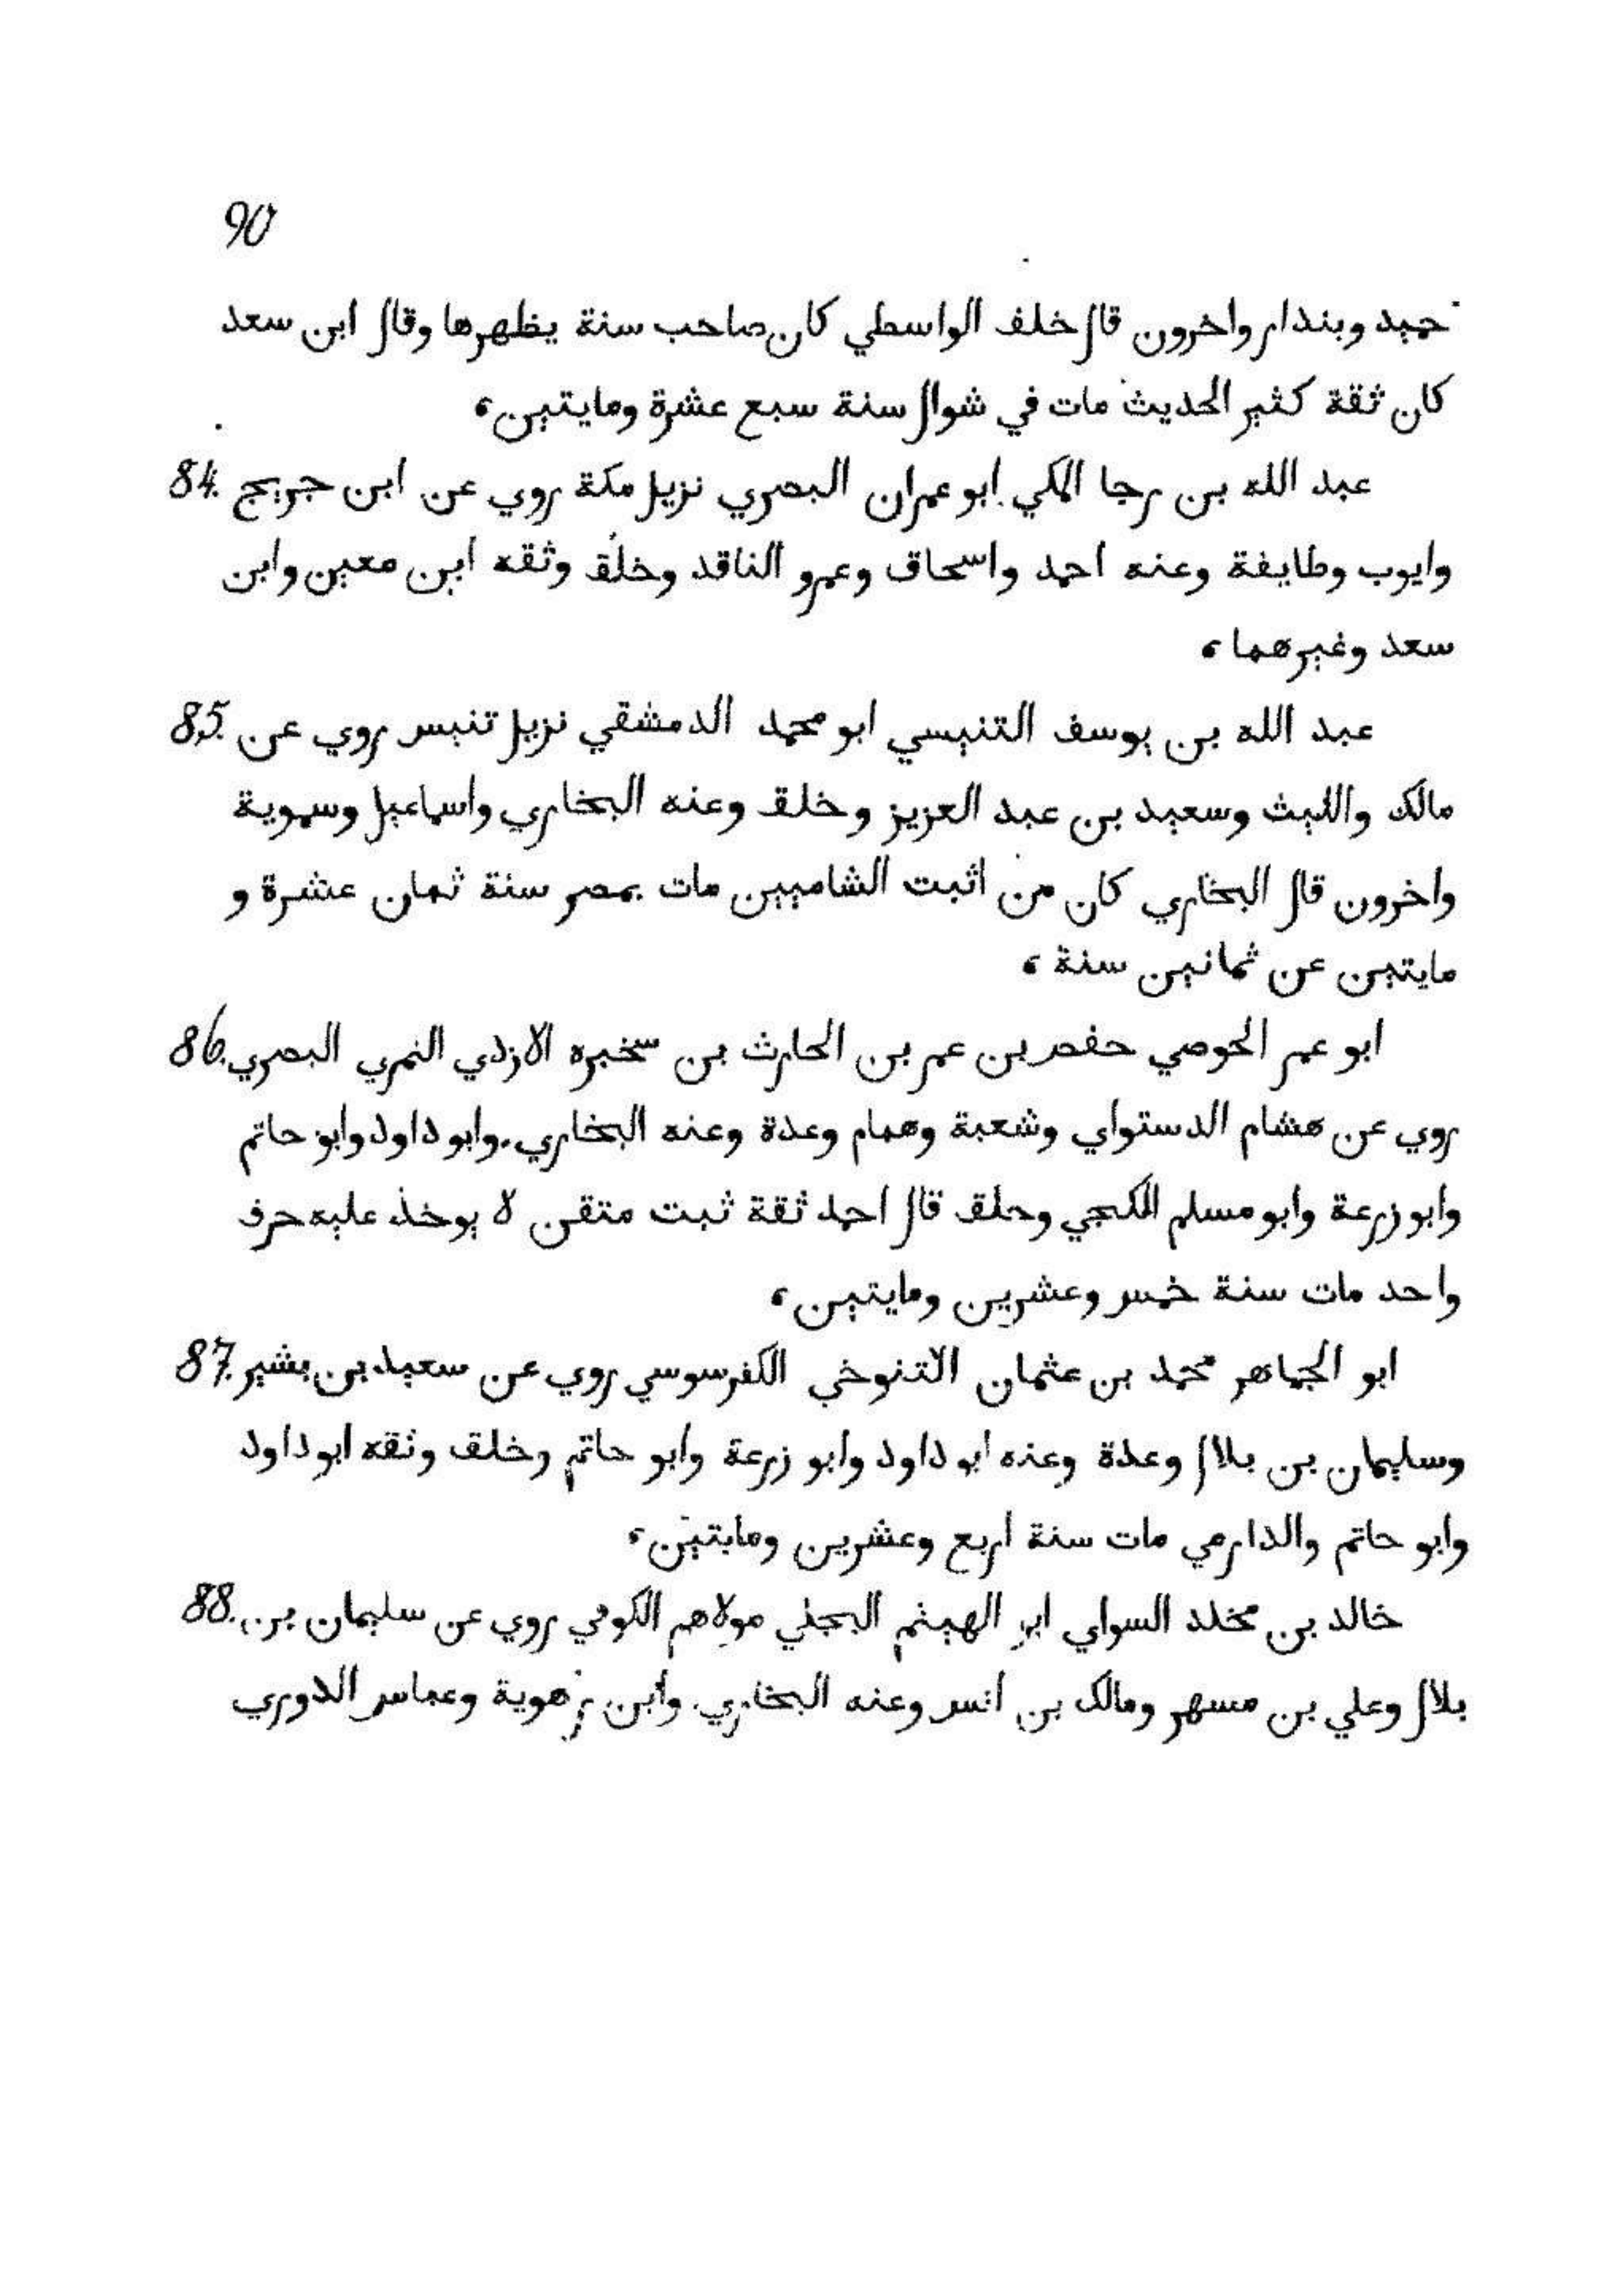 90
حميد وبندار واخرون قال خلف الواسطي كان صاحب سنة يظهرها وقال ابن سعد
كان ثقة كثير الحديث مات في شوال سنة سبع عشرة ومايتين،
84. عبد الله بن رجا المكي ابو عمران البصري نزيل مكة روي عن ابن جريج
وايوب وطايفة وعنه احمد واسحاق وعمرو الناقد وخلق وثقه ابن معين وابن
سعد وغيرهما،
85. عبد الله بن يوسف التنيسي ابو محمد الدمشقي نزيل تنيس روي عن
مالك والليث وسعيد بن عبد العزيز وخلق وعنه البخاري واسماعيل وسموية
واخرون قال البخاري كان من اثبت الشاميين مات بمصر سنة ثمان عشرة و
مايتين عن ثمانين سنة،
86. ابو عمر الحوصي حفص بن عمر بن الحارث بن سخبره الازدي النمري البصري
روي عن هشام الدستواي وشعبة وهمام وعدة وعنه البخاري وابو داود وابو حاتم
وابو زرعة وابو مسلم الكجي وحلق قال احمد ثقة ثبت متقن لا يوخذ عليه حرف
واحد مات سنة خمس وعشرين ومايتين،
87. ابو الجماهر محمد بن عثمان التنوخي الكفرسوسي روي عن سعيد بن بشير
وسليمان بن بلال وعدة وعنه ابو داود وابو زرعة وابو حاتم وخلق وثقه ابو داود
وابو حاتم والدارمي مات سنة اربع وعشرين ومايتين،
88. خالد بن مخلد السواي ابو الهيثم البجلي مولاهم الكوفي روي عن سليمان بن
بلال وعلي بن مسهر ومالك بن انس وعنه البخاري وابن رهوية وعباس الدوري